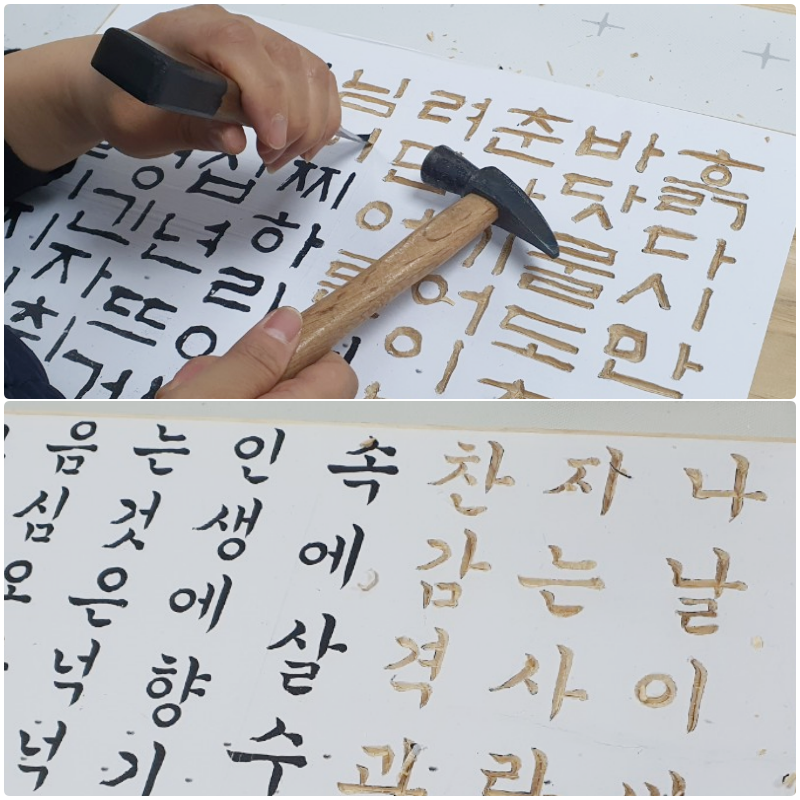 흙다시만
바닷물도
춘다기어이
려던어
님
찌하리
십년뜨거
긴자취
나날이
지는사라
찬감격과
속에살수
인생에향기
는것은넉넉
음심오